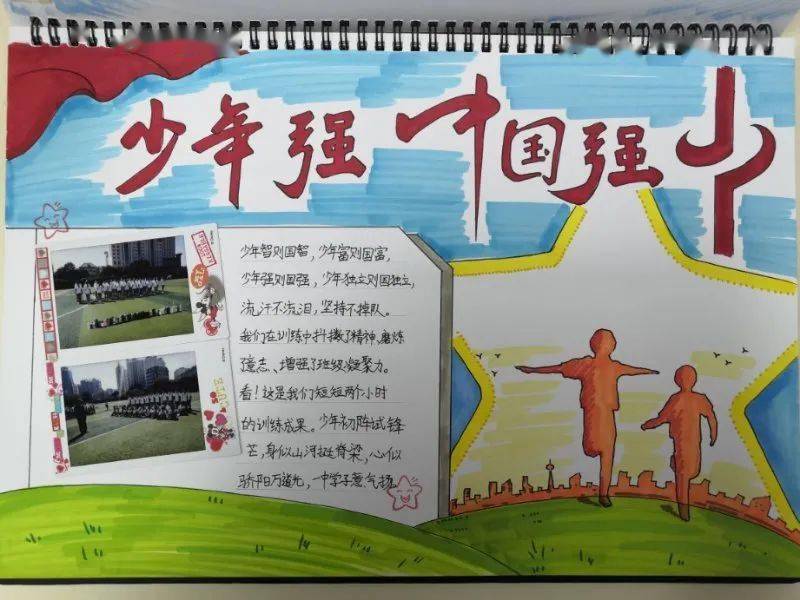 少年强 中国强
少年智则国智，少年富则国富，
少年强则国强，少年独立则国独立，
流汗不流泪，坚持不掉队。
我们在训练中抖擞了精神、磨炼
意志、增强了班级凝聚力。
看！这是我们短短两个小时
的训练成果。少年初阵试锋
芒，身似山河挺脊梁，心似
骄阳万道光，一中学子意气扬。